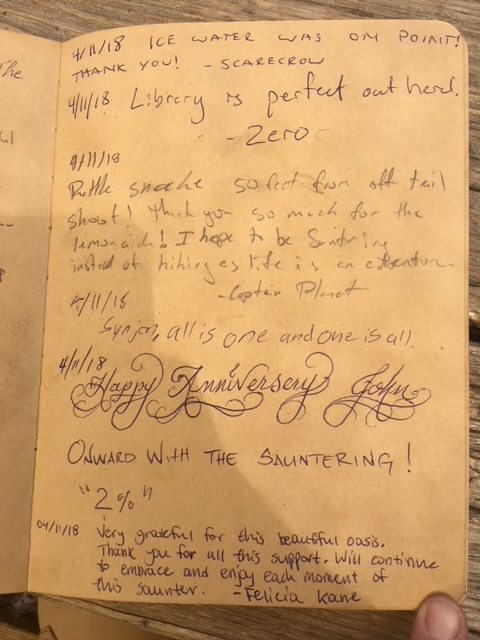 The
4/11/18 ICE WATER WAS ON POINT!
THANK YOU! - SCARECROW
4/11/18 Library is perfect out here.
- Zero
4/11/18
Rattle snake 50 feet from off tail
shoot! Thank you so much for the
lemonaid! I hope to be Santring
instead of hiking as life is an adventure.
- Captain Planet
4/11/18
all is one and one is all.
4/11/18
Happy Anniversery John
ONWARD WITH THE SAUNTERING!
"2%"
04/11/18 Very grateful for this beautiful oasis.
Thank you for all this support. Will continue
to embrace and enjoy each moment of
this saunter. - Felicia Kane